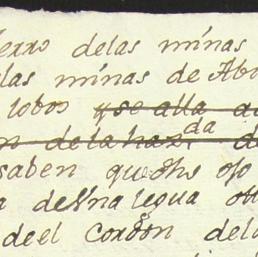 ierro delas minas
las minas de Abo
lobos y se alla a
n de la haz.da d
saben q dhs ojo
a de Vna legua ott
de el Cordon dela